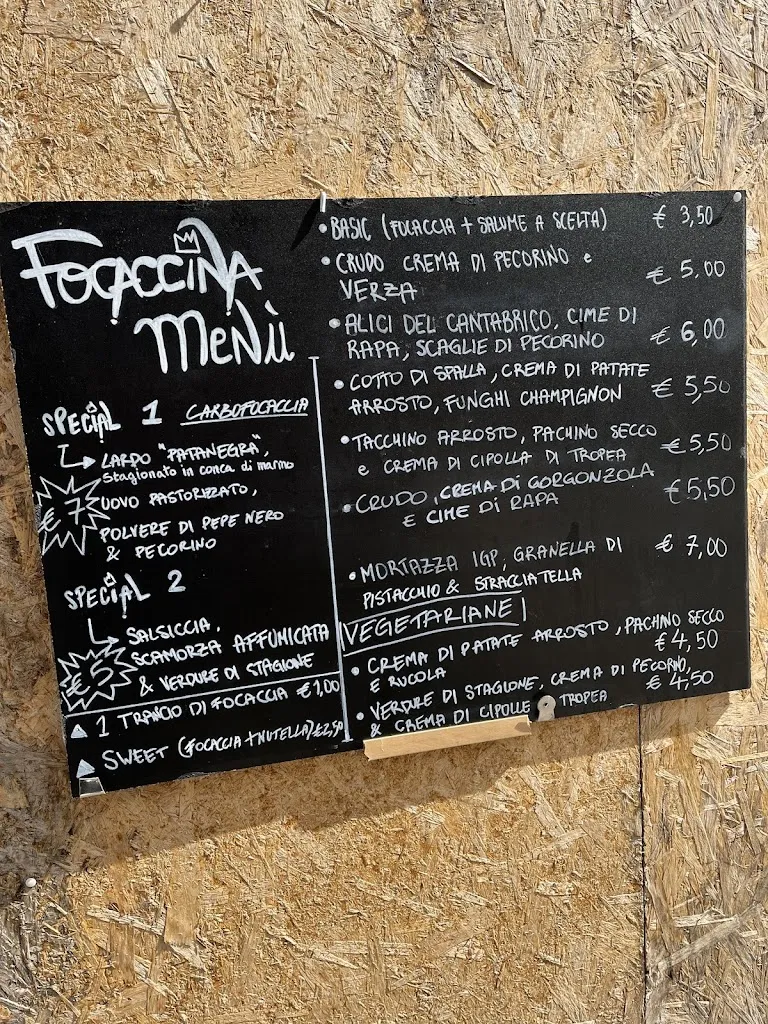 FOCACCINA
MENÙ
SPECIAL 1 CARBOFOCACCIA
LARDO "PATANEGRA",
stagionato in conca di marmo
UOVO PASTORIZZATO,
POLVERE DI PEPE NERO
& PECORINO
€ 7
SPECIAL 2
SALSICCIA,
SCAMORZA AFFUMICATA
& VERDURE DI STAGIONE
€ 5
1 TRANCIO DI FOCACCIA €1,00
SWEET (FOCACCIA + NUTELLA) €2,50
• BASIC (FOCACCIA + SALUME A SCELTA) € 3,50
• CRUDO CREMA DI PECORINO e
VERZA € 5,00
• ALICI DEL CANTABRICO, CIME DI
RAPA, SCAGLIE DI PECORINO € 6,00
• COTTO DI SPALLA, CREMA DI PATATE
ARROSTO, FUNGHI CHAMPIGNON € 5,50
• TACCHINO ARROSTO, PACHINO SECCO
e CREMA DI CIPOLLA DI TROPEA €5,50
• CRUDO, CREMA DI GORGONZOLA
E CIME DI RAPA €5,50
• MORTAZZA IGP, GRANELLA DI
PISTACCHIO & STRACCIATELLA € 7,00
VEGETARIANE
• CREMA DI PATATE ARROSTO, PACHINO SECCO
E RUCOLA € 4,50
• VERDURE DI STAGIONE, CREMA DI PECORINO,
& CREMA DI CIPOLLE TROPEA € 4,50